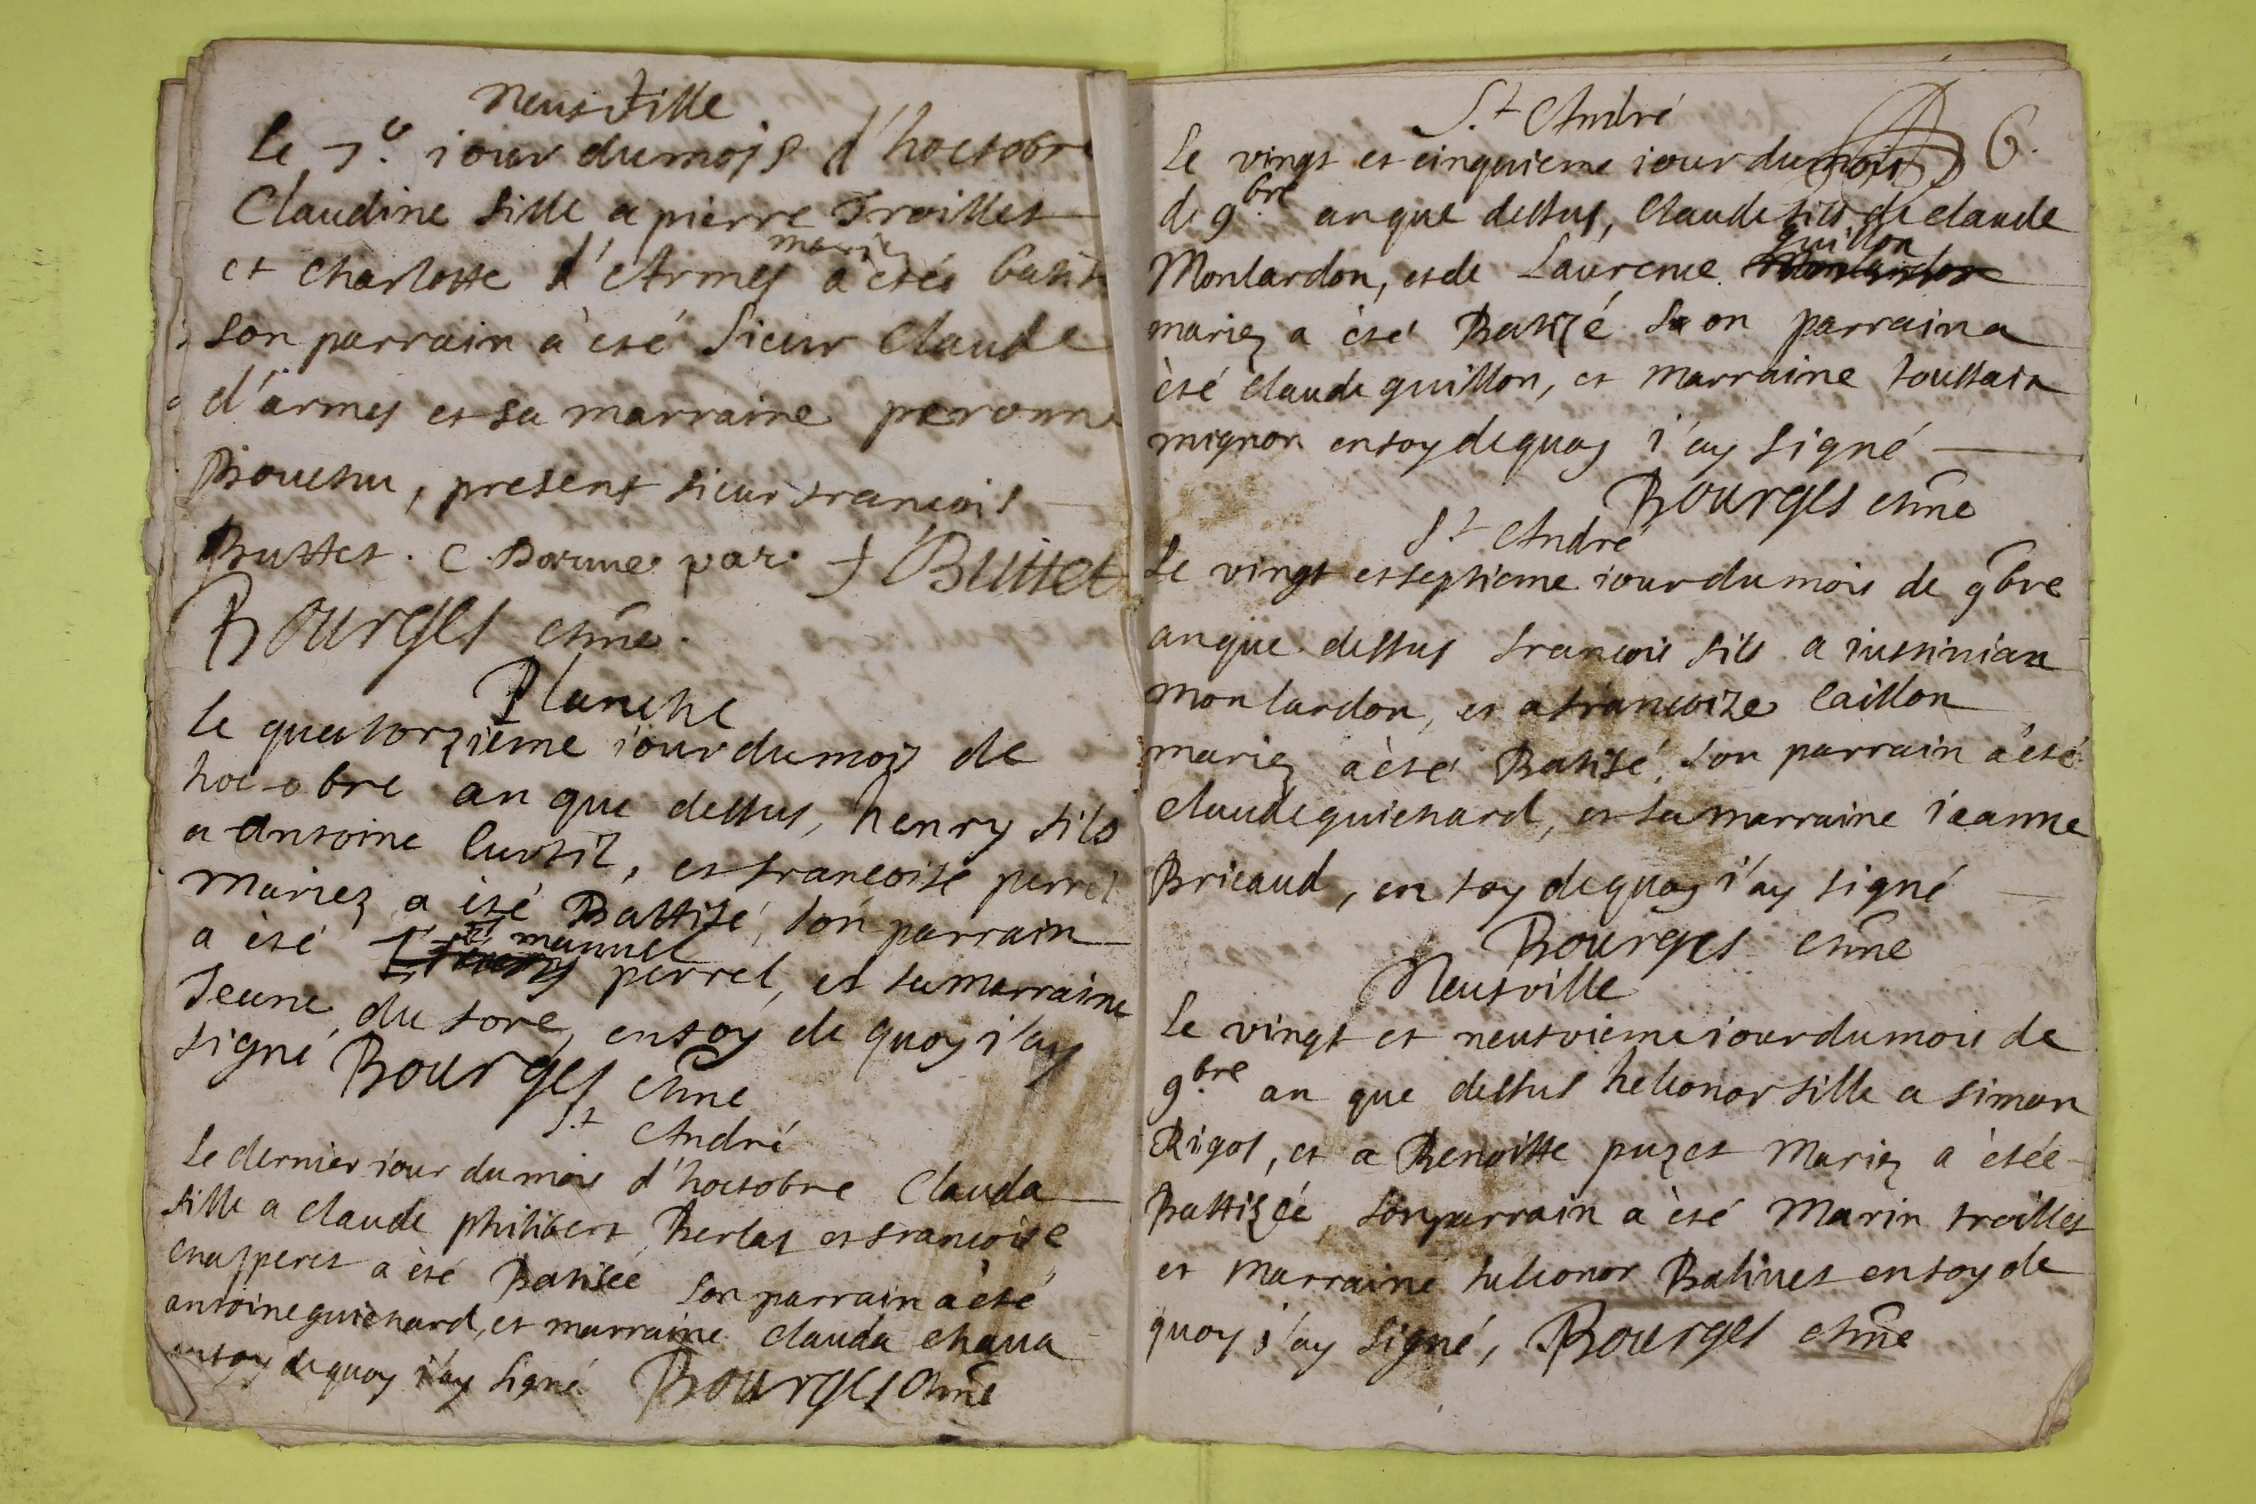 Neufville
Le 7.e iour du mois d'hoctobre
Claudine fille a pierre Troillet
et Charlotte d'Armes mariez a étéé batis
son parrain à èté Sieur Claude
d'armes et sa marraine peronne
Bouchu, present sieur francois
Buttet. C. Dorune par f Buttet
Bourges chñe.
Planche
le quatorzieme iour du mois de
hoctobre an que dessus, henry fils
a Antoine Curtil, et francoise perret
Mariez a èté Battisé, son parrain
a èté Emanuel perret, et sa marraine
Jeane du fore, en foy de quoy i'ay
signé Bourges chñe
S.t André
Le dernier iour du mois d'hoctobre Clauda
fille a claude philibert Berlat et francoise
chasperet a èté Batisée son parrain a èté
antoine guichard, et marraine clauda chaua
en foy de quoy i'ay signé Bourges chñe
S.t André
6.
Le vingt et cinquieme iour du mois
de 9.bre an que dessus, Claude fils de claude
Montardon, et de Laurence guillon
mariez a èté Batizé son parrain a
èté claude guillon, et marraine toussain
mignon en foy de quoy i'ay signé
Bourges chñe
S.t André
Le vingt et septieme iour du mois de 9bre
an que dessus francois fils a iustinian
montardon, et a francoize Caillon
mariez a èté Batisé, son parrain a èté
claude guichard, et sa marraine ieanne
Bricaud, en foy de quoy i'ay signé
Bourges chñe
Neufville
Le vingt et neufvieme iour du mois de
9.bre an que dessus helionor fille a simon
Rigot, et a Benoitte puzet Mariez a étée
Battizée, son parrain a èté Marin troillet
et marraine helionor Balivet en foy de
quoy i'ay signé, Bourges chñe